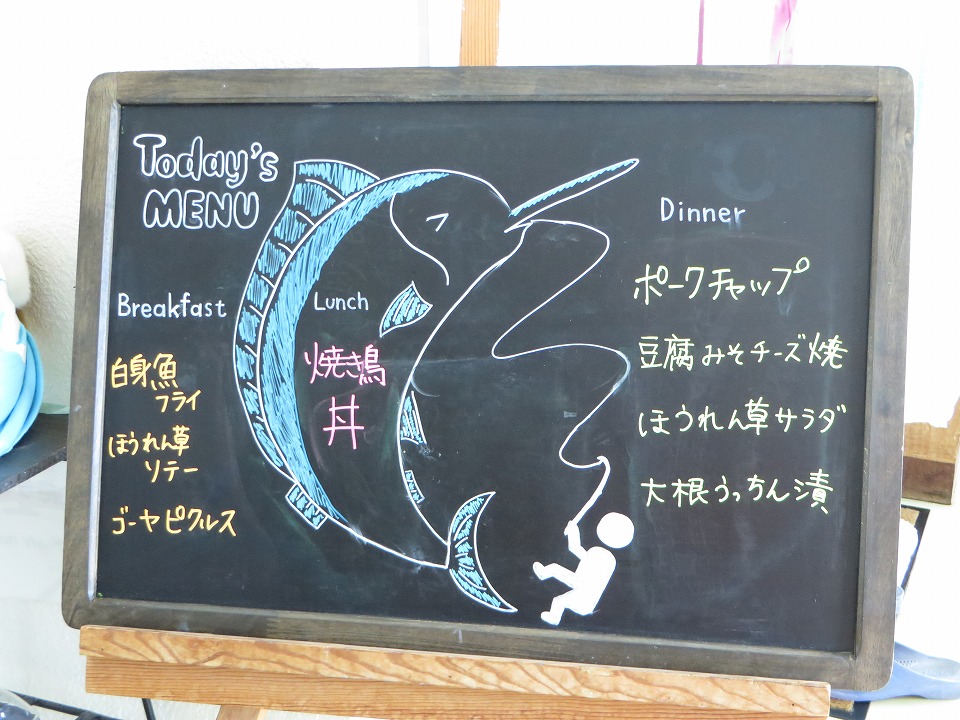 Today's
MENU
Breakfast
白身魚
フライ
ほうれん草
ソテー
ゴーヤピクルス
Lunch
焼き鳥
丼
Dinner
ポークチャップ
豆腐みそチーズ焼
ほうれん草サラダ
大根うっちん漬